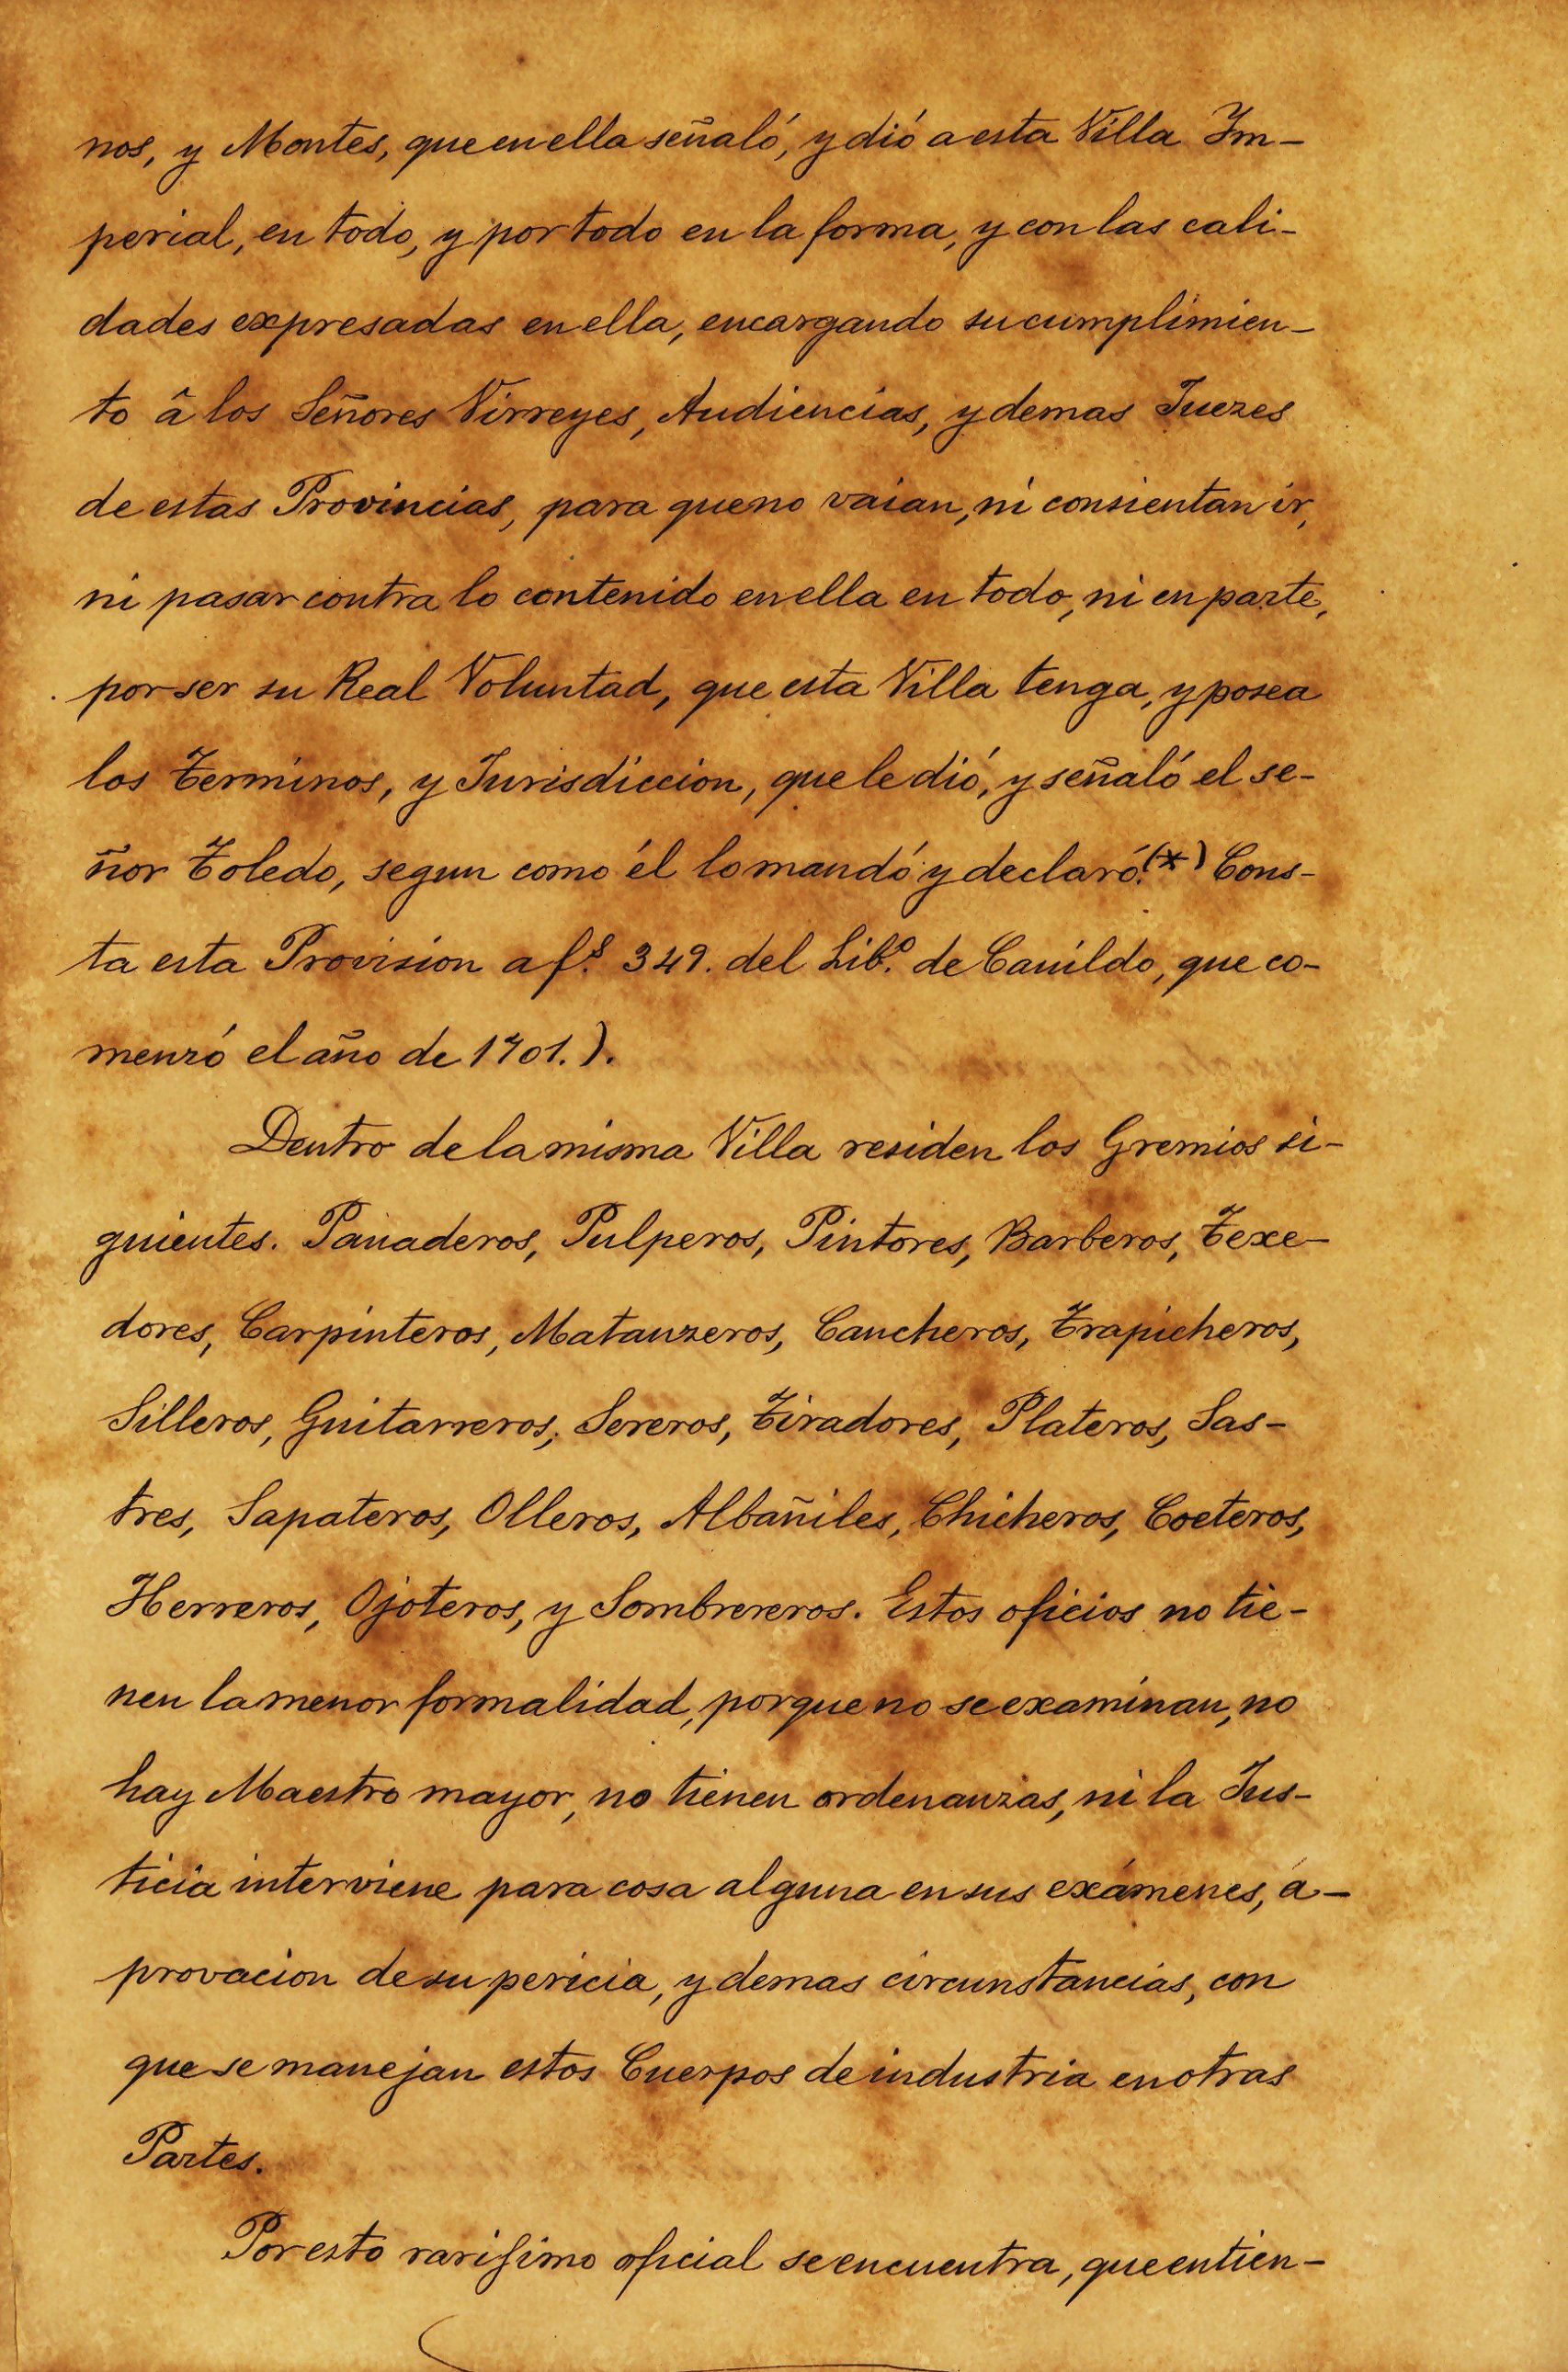 nos, y Montes, que en ella señaló, y dió a esta Villa Im-
perial, en todo, y por todo en la forma, y con las cali-
dades expresadas en ella, encargando su cumplimien-
to â los Señores Virreyes, Audiencias, y demas Juezes
de estas Provincias, para que no vaian, ni consientan ir,
ni pasar contra lo contenido en ella en todo, ni en parte,
por ser su Real Voluntad, que esta Villa tenga, y posea
los Terminos, y Jurisdiccion, que le dió, y señaló el se-
ñor Toledo, segun como él lo mandó y declaró.(*) Cons-
ta esta Provision a fs. 349. del Libº. de Cauildo, que co-
menzó el año de 1701.).
Dentro de la misma Villa residen los Gremios si-
guientes. Panaderos, Pulperos, Pintores, Barberos, Texe-
dores, Carpinteros, Matanzeros, Cancheros, Trapicheros,
Silleros, Guitarreros, Sereros, Tiradores, Plateros, Sas-
tres, Sapateros, Olleros, Albañiles, Chicheros, Coeteros,
Herreros, Ojoteros, y Sombrereros. Estos oficios no tie-
nen la menor formalidad, porque no se examinan, no
hay Maestro mayor, no tienen ordenanzas, ni la Jus-
ticia interviene para cosa alguna en sus exámenes, á-
provacion de su pericia, y demas circunstancias, con
que se manejan estos Cuerpos de industria en otras
Partes.
Por esto rarisimo oficial se encuentra, que entien-